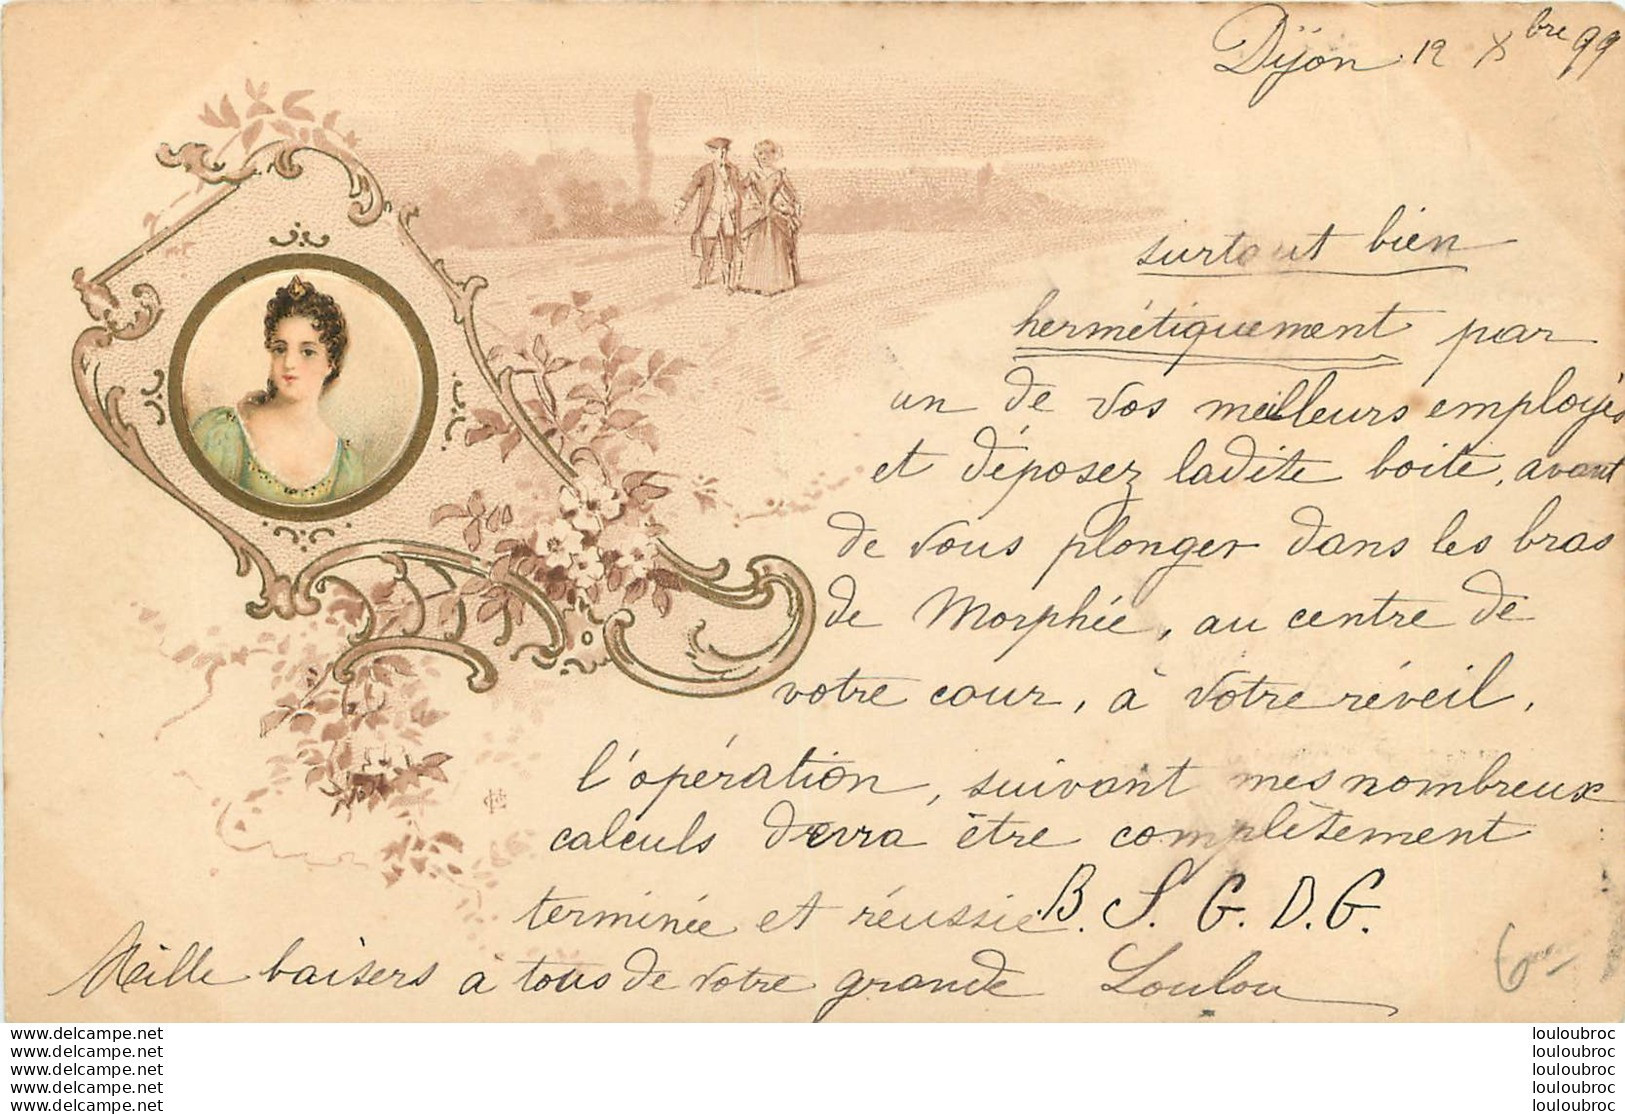 Dijon 12 Xbre 99
surtout bien
hermétiquement par
un de vos meilleurs employés
et déposez ladite boite, avant
de vous plonger dans les bras
de Morphée, au centre de
votre cour, à votre réveil,
l'opération, suivant mes nombreux
calculs devra être complètement
terminée et réussie B. S. G. D. G.
Mille baisers à tous de votre grande Loulou
delcampe.net louloubroc
delcampe.net louloubroc
delcampe.net louloubroc
delcampe.net louloubroc
delcampe.net louloubroc